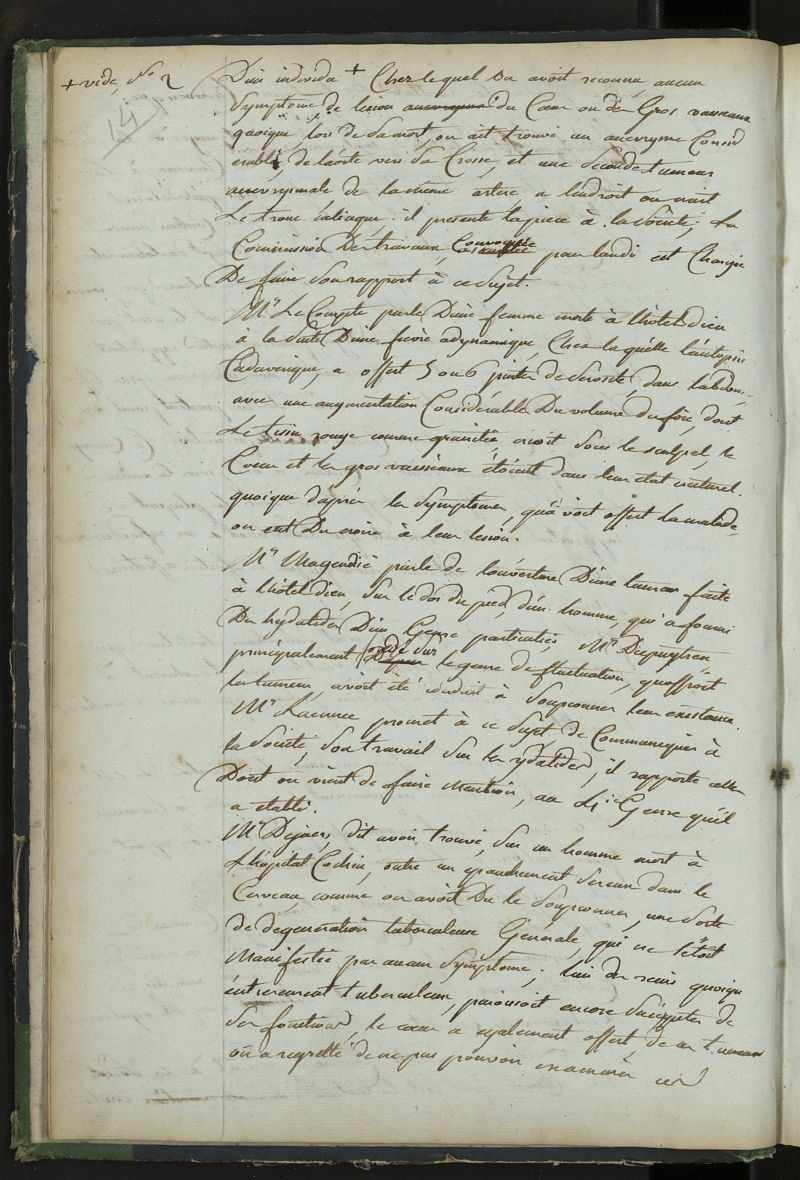 + vide, No 2
14
D'un individu + Chez lequel on avoit reconnu aucun
Symptome de lesion du Cœur ou des Gros vaisseaux
quoique, lors de sa mort, on ait trouvé un anevrysme Consid
erable, de l'aorte vers sa Crosse, et une seconde tumeur
anevrysmale de la meme artere a l'endroit ou nait
Le tronc Cœliaque. il presente la piece à la société, La
Commission Des travaux, Convoquée pour lundi est Chargée
De faire son rapport à ce sujet.
Mr Le Compte parle D'une femme morte à l'hotel dieu
à la suite D'une fievre adynamique, Chez laquelle l'autopsie
Cadaverique, a offert 5 ou 6 pintes de serosité, dans l'abdom,
avec une augmentation Considérable Du volume du foie, dont
Le tissu rouge comme granitée crioit sous le scalpel, le
Cœur et les gros vaisseaux étoient dans leur etat naturel.
quoique d'après les symptomes, qu'avoit offert la malade,
on eut Du croire à leur lesion.
Mr Magendie parle de l'ouverture D'une tumeur faite
à l'hotel dieu, sur le dos du pied, d'un homme, qui a fourni
Des hydatides D'un Genre particulier, Mr Dupuytren
principalement guidé sur le genre de fluctuation, qu'offroit
la tumeur, avoit été conduit à soupconner leur existence.
Mr Laennec promet à ce sujet de Communiquer à
la société, son travail sur les ydatides, il rapporte celles
Dont on vient de faire mention, au 4e Genre qu'il
a etabli.
Mr Dejaer, dit avoir trouvé, sur un homme mort à
L'hopital Cochin, outre un epanchement sereux dans le
Cerveau, comme on avoit Du le soupconner, une sorte
de degeneration tuberculeuse Générale, qui ne s'étoit
Manifestée par aucun symptome; l'un des reins quoique
entierement tuberculeux, paroissoit encore s'acquitter de
ses fonctions, le cœur a egalement offert de ces tumeurs
on a regretté de ne pas pouvoir examiner ces